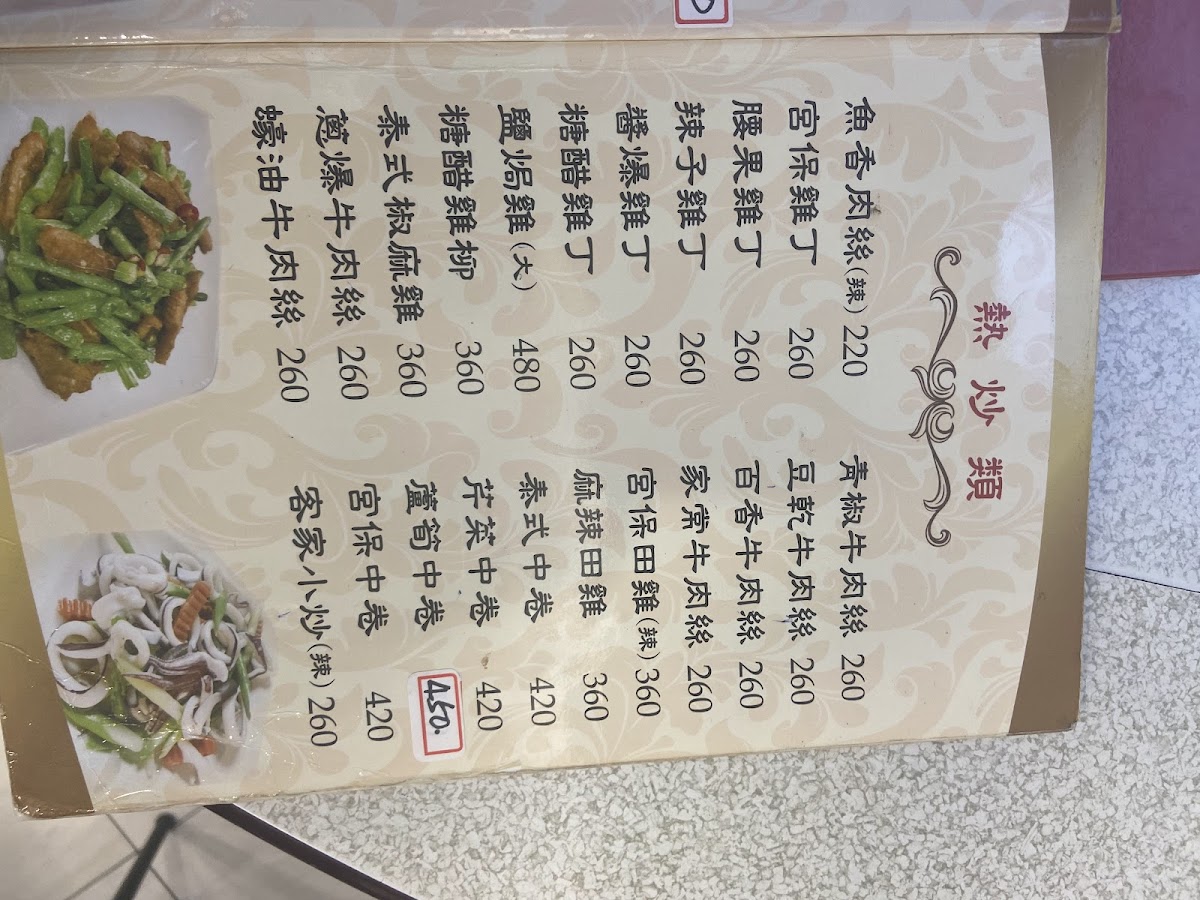 熱炒類
魚香肉絲(辣) 220
宮保雞丁 260
腰果雞丁 260
辣子雞丁 260
醬爆雞丁 260
糖醋雞丁 260
鹽焗雞(大) 480
糖醋雞柳 360
泰式椒麻雞 360
蔥爆牛肉絲 260
蠔油牛肉絲 260
青椒牛肉絲 260
豆乾牛肉絲 260
百香牛肉絲 260
家常牛肉絲 260
宮保田雞(辣) 360
麻辣田雞 360
泰式中卷 420
芹菜中卷 420
蘆筍中卷 450.
宮保中卷 420
客家小炒(辣) 260